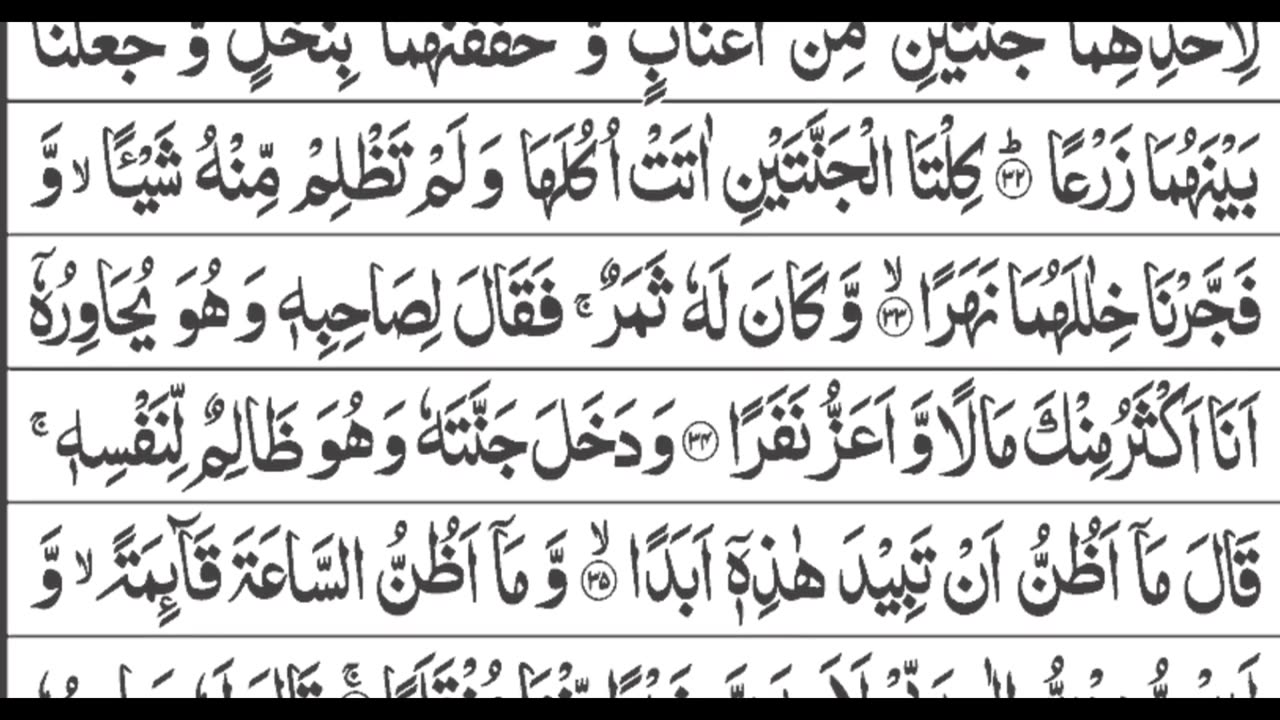 لِاَحَدِهِمَا جَنَّتَيْنِ مِنْ اَعْنَابٍ وَّ حَفَفْنٰهُمَا بِنَخْلٍ وَّ جَعَلْنَا
بَيْنَهُمَا زَرْعًا ؕ ﴿۳۲﴾ كِلْتَا الْجَنَّتَيْنِ اٰتَتْ اُكُلَهَا وَ لَمْ تَظْلِمْ مِّنْهُ شَيْـًٔا ۙ وَّ
فَجَّرْنَا خِلٰلَهُمَا نَهَرًا ۙ ﴿۳۳﴾ وَّ كَانَ لَهٗ ثَمَرٌ ۚ فَقَالَ لِصَاحِبِهٖ وَ هُوَ يُحَاوِرُهٗۤ
اَنَا اَكْثَرُ مِنْكَ مَالًا وَّ اَعَزُّ نَفَرًا ﴿۳۴﴾ وَ دَخَلَ جَنَّتَهٗ وَ هُوَ ظَالِمٌ لِّنَفْسِهٖ ۚ
قَالَ مَاۤ اَظُنُّ اَنْ تَبِيْدَ هٰذِهٖۤ اَبَدًا ۙ ﴿۳۵﴾ وَّ مَاۤ اَظُنُّ السَّاعَةَ قَآىِٕمَةً ۙ وَّ